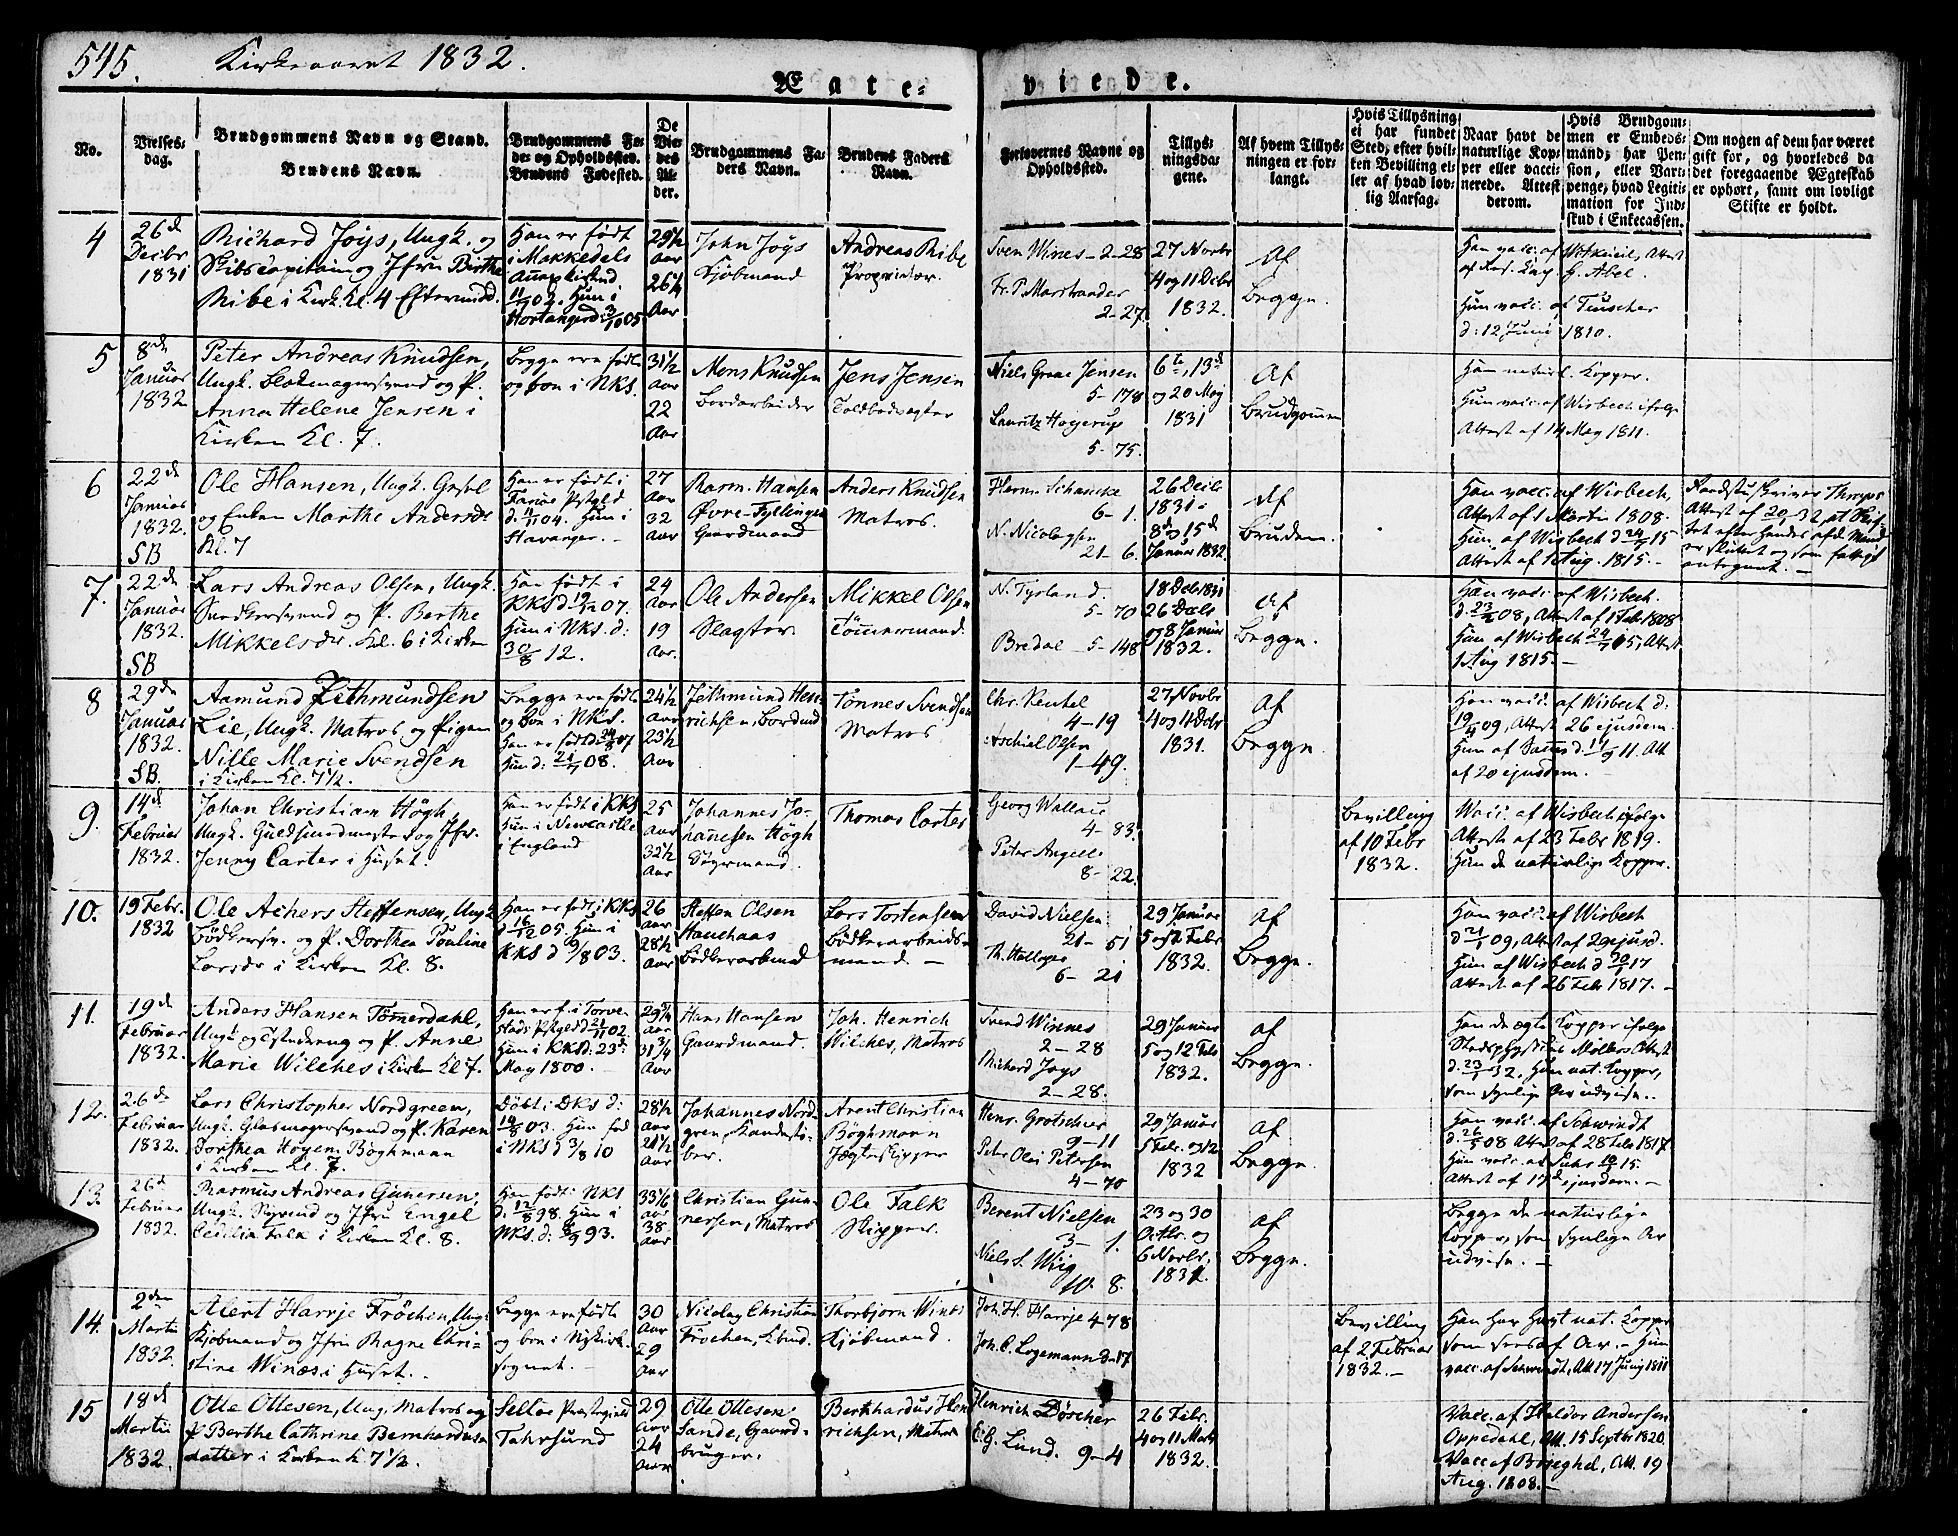 545. Kirkeaaret 1832.
Ægte-
viede.
No.
Vielses-
dag.
Brudgommens Navn og Stand.
Brudens Navn.
Brudgommens Fø-
de- og Opholdssted.
Brudens Fødested.
De
Vie-
des
Al-
der.
Brudgommens Fa-
ders Navn.
Brudens Faders
Navn.
Forlovernes Navne og
Opholdssted.
Tillys-
ningsda-
gene.
Af hvem Tillys-
ningen er for-
langt.
Hvis Tillysning
ei har fundet
Sted, efter hvil-
ken Bevilling el-
ler af hvad lov-
lig Aarsag.
Naar havt de
naturlige Kop-
per eller vacci-
nerede. Attest
derom.
Hvis Brudgom-
men er Embeds-
mand, har Pen-
sion, eller Vart-
penge, hvad Legiti-
mation for Ind-
skud i Enkecassen.
Om nogen af dem har været
gift før, og hvorledes da
det foregaaende Ægteskab
er ophørt, samt om lovligt
Skifte er holdt.
4
26de
Decbr
1831
Richard Joys, Ungk. og
Skibscapitain og Jfru Berthe
Ribe i Kirk. Kl. 4 Eftermidd.
Han er født
29½
Aar
26¼
Aar
John Joys
Kjøbmand
Andreas Ribe
Proprietær.
Sven Wines - 2-28
Fr. P. Marstrander
2-27
27 Novbr
4 og 11 Decbr
1832.
Af
Begge.
Hun vacc. af Tuscher
d: 12 Juni 1810.
5
8de
Januar
1832
Peter Andreas Knudsen,
Ungk. Blokmagersvend og P.
Anna Helene Jensen i
Kirken Kl. 7.
Begge ere født
og boe i NKS.
31½
Aar
22
Aar
Mons Knudsen
Bordarbeider
Jens Jensen
Toldbodvægter
Niels Graae Jensen
5-178
Lauritz Hoyerup
5-75.
6te, 13de
og 20 May
1831
Af
Brudgommen
Han naturl. Kopper.
Hun vacc. af Wisbech ifølge
Attest af 14 May 1811.
6
22de
Januar
1832.
SB
Ole Hansen, Ungk. Gesel
og Enken Marthe Andersdr
Kl. 7
Han er født i
d. 11/11 04. Hun i
Stavanger.
27
Aar
32
Aar
Rasm. Hansen
Øvre-Fyllingen
Gaardmand
Anders Knudsen
Matros.
Herm. Schanche
6-1.
N. Nicolaysen
21-6.
26 Decbr
1831
8de og 15de
Januar 1832.
Af
Bruden.
Han vacc. af Wisbech,
Attest af 1 Martii 1808.
Hun af Wisbech d 24/7 15
Attest af 1 Aug. 1815.
7.
22de
Januar
1832.
SB
Lars Andreas Olsen, Ungk.
Snedkersvend og P. Berthe
Mikkelsdr. Kl. 6 i Kirken
Han født i
KKS d 19/12 07.
Hun i NKS. d:
30/8 12.
24
Aar
19
Aar.
Ole Andersen
Slagter.
Mikkel Olsen
Tømmermand.
N. Tyrland
5-70
Bredal - 5-148
18 Decbr 1831
26 Decbr
og 8 Januar
1832.
Af
Begge.
Han vacc. af Wisbech.
d. 23/2 08, Attest af 1 Febr 1808
Hun af Wisbech 24/7 15, Attest
1 Aug 1815.
8
29de
Januar
1832.
SB.
Aamund Jethmundsen
Lie, Ungk. Matros og Pigen
Nille Marie Svendsen
i Kirken Kl. 7½.
Begge ere født
og boe i NKS.
Han er født d: 24/8 07
Hun d: 21/7 08.
24½
Aar
23½
Aar
Jethmund Hen-
richsen, Bordmd
Tønnes Svendsen
Matros
Chr. Reutel
4-19
Aschiel Olsen
1-49.
27 Novbr
4 og 11 Decbr
1831.
Af
Begge.
Han vacc. af Wisbech d:
19/4 09, Attest 26 ejusdem.
af 20 ejusdem.
9.
14de
Februar
1832.
Johan Christian Høgh,
Ungk. Guldsmedmester og Jfr.
Jenny Carter i Huset.
Han er født i KKS
Hun i Newcastle
i England
25
Aar
32½
Aar
Johannes Jo-
hannesen Høgh
Styrmand.
Thomas Carter
Georg Wallace
4-83.
Peter Angell
8-22.
Bevilling
af 10 Febr
1832.
Vacc. af Wisbech ifølge
Attest af 23 Febr 1819.
Hun de naturlige Kopper.
10.
19 Febr.
1832
Ole Achers Steffensen, Ungk
Bødkersv. og P. Dorthea Pauline
Larsdr i Kirken Kl. 8.
Han er født i KKS
d 16/12 05. Hun i
KKS d 9/8 03.
26
Aar
28½
Aar
Steffen Olsen
Hauchaas
Bødkerarbmd
Lars Tostensen
Bødkerarbeids-
mand.
David Nielsen
21-51
Th. Hallager
6-21
29 Januar
5 og 12 Febr.
1832.
Af
Begge.
Han vacc. af Wisbech
d 21/1 09, Attest af 29 ejusd.
Hun af Wisbech d 20/1 17
Attest af 26 Febr 1817.
11.
19de
Februar
1832.
Anders Hansen Tømerdahl,
Ungk og P. Anne
Marie Wilches i Kirken Kl 7.
Hun i KKS d: 23de
May 1800.
29¼
Aar
31¾
Aar
Hans Hansen
Gaardmand.
Joh. Henrich
Wilches, Matros
Svend Winnes
2-28
Richard Joys
2-28.
29 Januar
5 og 12 Febr
1832.
af
Begge.
Han de ægte Kopper ifølge
Stadsphysicus Møllers Attest
d. 23/1 32, Hun nat. Kopper,
som synlige Ar udvise.
12.
26de
Februar
1832.
Lars Christopher Nordgreen,
Ungk. Glasmagersvend og P. Karen
Dorthea Høyem Bøghmann
i Kirken Kl. 7.
Døbt i DKS d:
19/8 03. Hun fød
i NKS d 3/8 10
28½
Aar
21½
Aar
Johannes Nord-
gren, Kandestø-
ber.
Arent Christian
Bøghmann
Jægtskipper
Henr. Grotschier
9-11
Peter Olai Petersen
4-70
29 Januar
5 Febr. og 12
1832
af
Begge.
Han vacc. af Schwindt
d. 26/5 08 Attest af 28 Febr 1817
Hun vacc. af Suhr 10/6 15.
Attest af 17de ejusdem.
13.
26de
Februar
1832.
Rasmus Andreas Gunersen,
Ungk. og Jfru Engel
Cecilia Falk i Kirken Kl. 8.
Han født i NKS
d. 12/8 98. Hun i
NKS. d: 93.
33½
Aar
38
Aar
Christian Gun-
nersen, Matros
Ole Falk
Skipper.
Berent Nielsen
3-1.
Niels S. Wiig
10-8.
23 og 30
Octbr. og
6 Novbr.
1831.
af
Begge.
Begge de naturlige
Kopper, som synlige Ar
udvise.
14.
2den
Martii
1832.
Alert Harrje Frøchen, Ungk
Kjøbmand og Jfru Ragne Chri-
stine Wines i Huset.
Begge ere født
og boe i Nykirke-
sognet.
30
Aar
29
Aar
Nicolay Christian
Frøchen, Kbmd.
Thorbjørn Wines
Kjøbmand.
Joh. H. Harrje 4-78
Joh. C. Logemann 3-17
Bevilling
af 2 Februar
1832.
Han har havt nat. Kopper
som sees af Ar. Hun
vacc. af Schwindt, Att 17 Juny 1811
15
18de
Martii
1832.
Olle Ottesen, Ung. Matros og
P Berthe Cathrine Bernhardus-
datter i Kirken K. 7½.
Seltøe Præstegield
Fahrsund
29
Aar
24
Aar
Otte Ottesen
Sande, Gaard-
bruger.
Bernhardus Hen-
richsen, Matros
Henrich Döscher
C. G. Lund. 9-4
26 Febr.
4 og 11 Marts
1832.
Vacc. af Haldor Andersen
Oppedahl, Att. 15 Septbr 1820.
Aug. 1808.